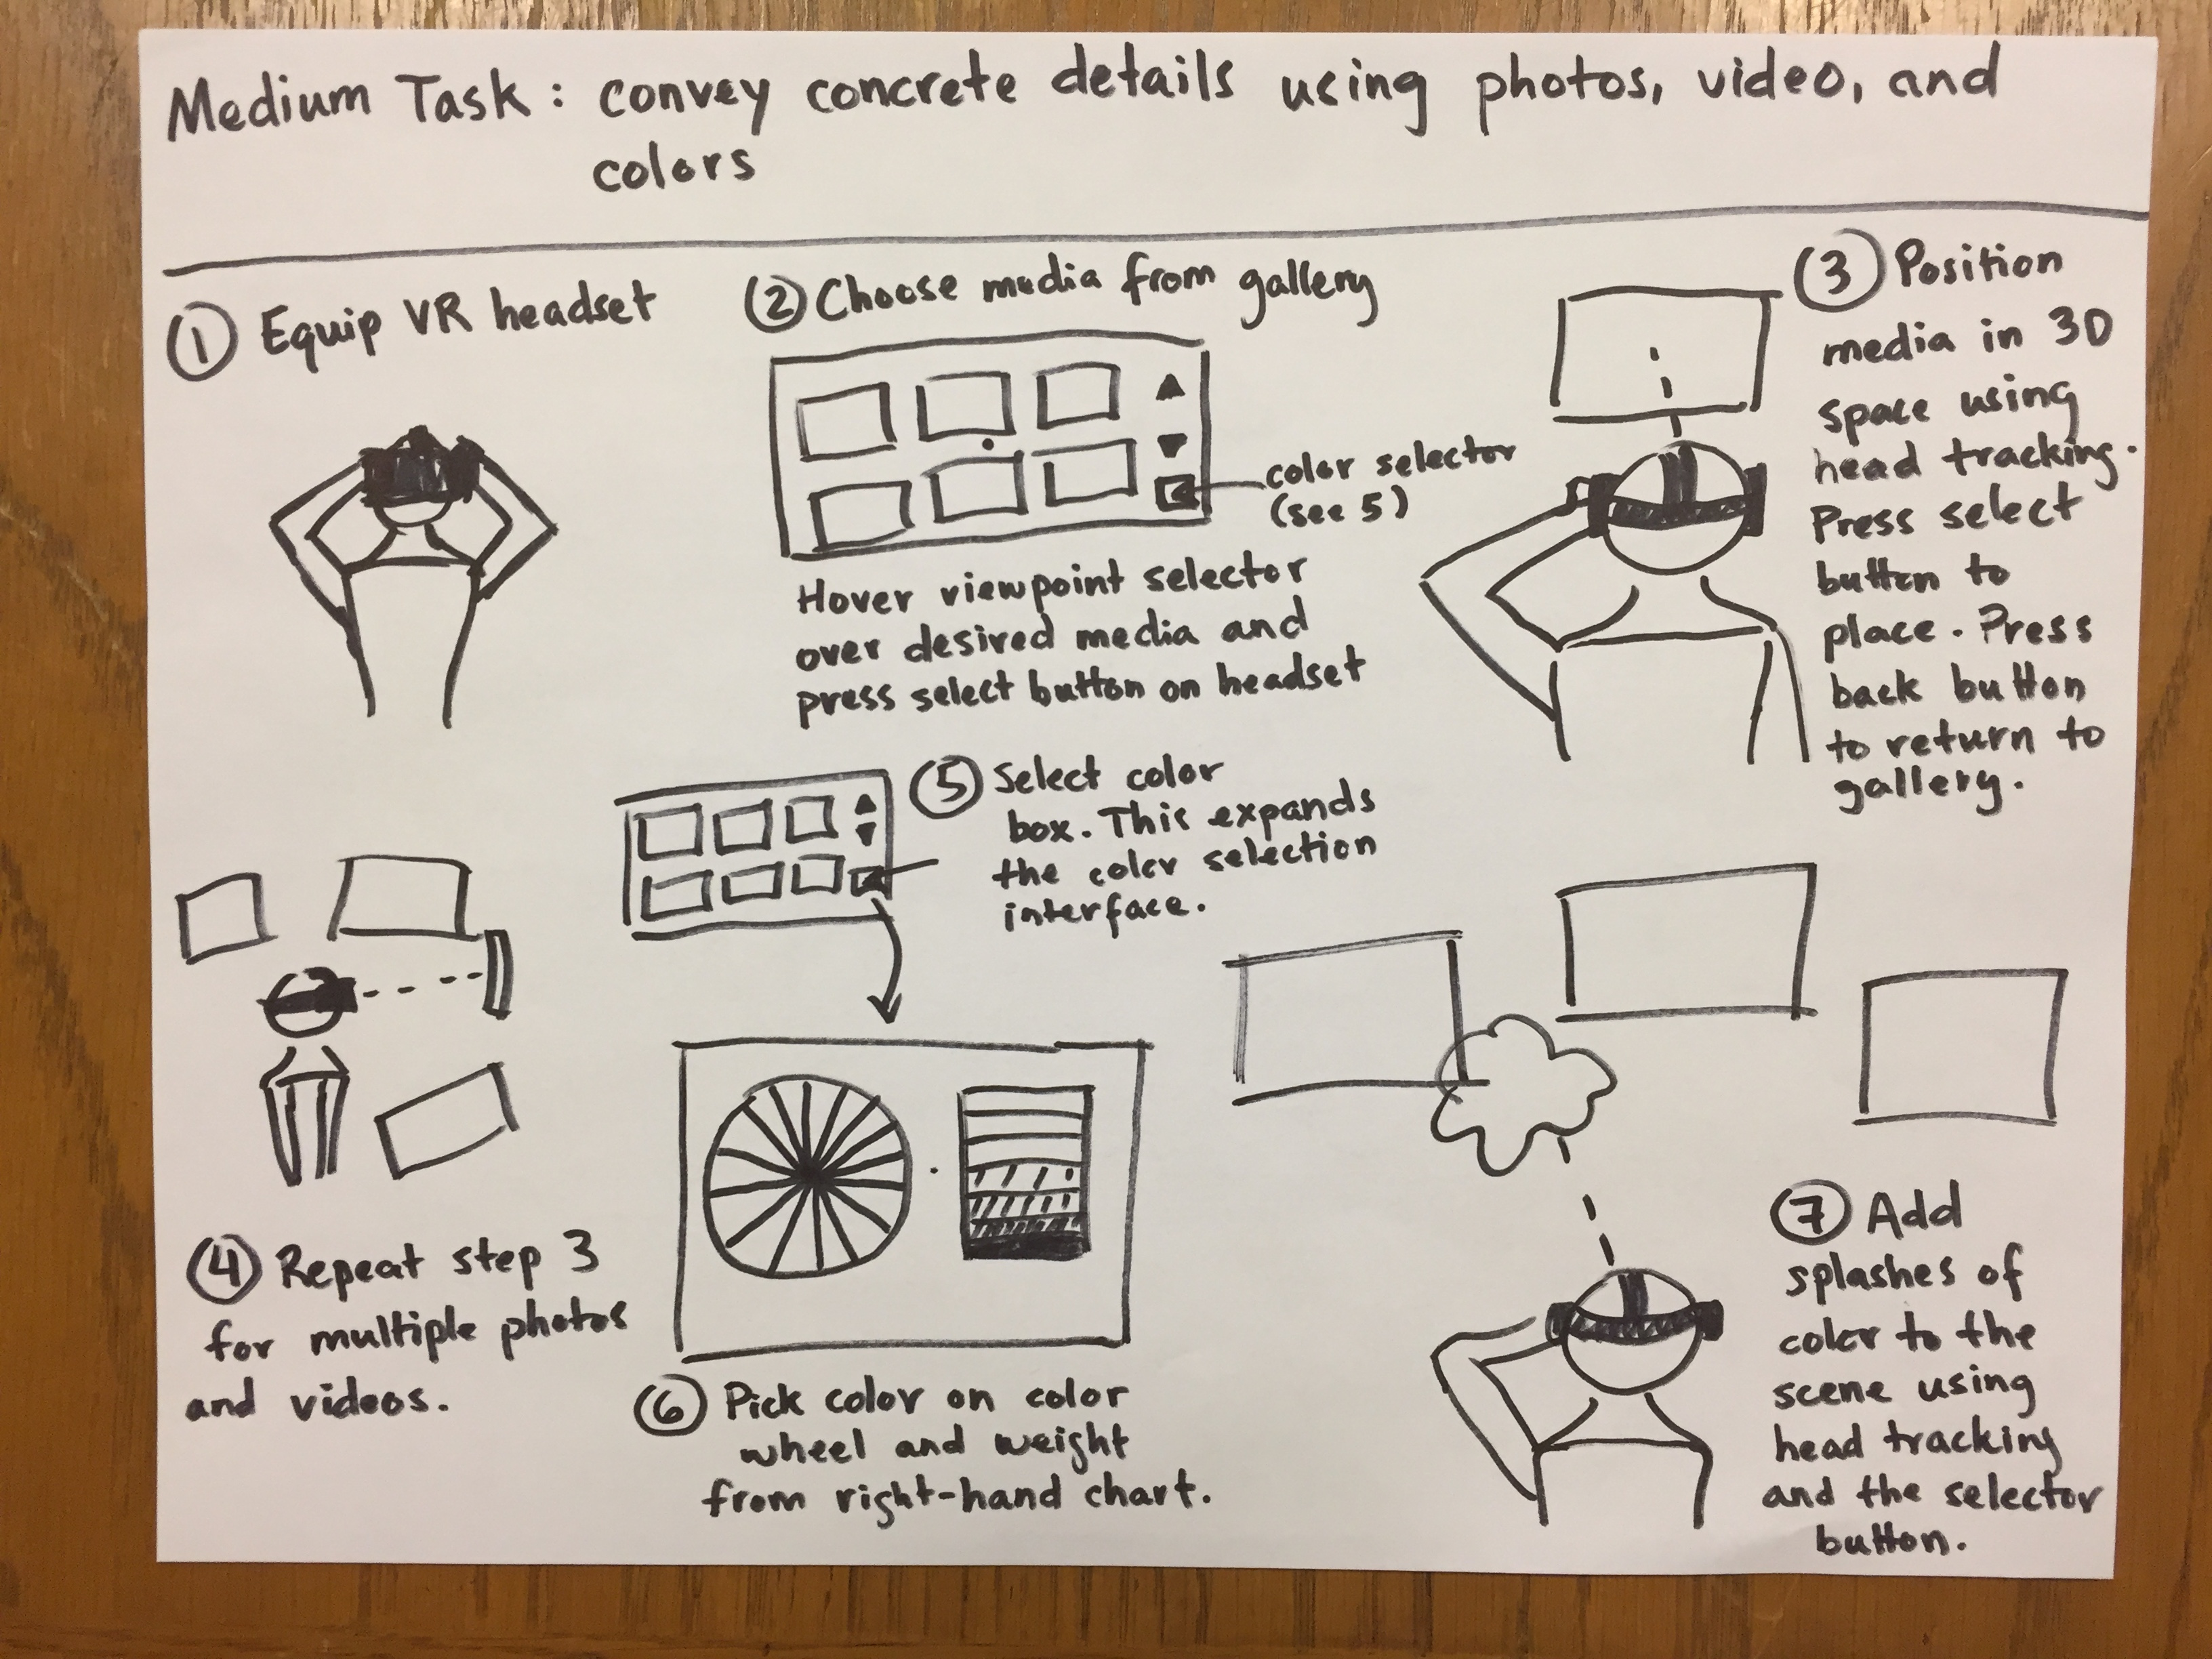 Medium Task: convey concrete details using photos, video, and
colors
① Equip VR headset
② Choose media from gallery
color selector
(see 5)
Hover viewpoint selector
over desired media and
press select button on headset
③ Position
media in 3D
space using
head tracking.
Press select
button to
place. Press
back button
to return to
gallery.
④ Repeat step 3
for multiple photos
and videos.
⑤ Select color
box. This expands
the color selection
interface.
⑥ Pick color on color
wheel and weight
from right-hand chart.
⑦ Add
splashes of
color to the
scene using
head tracking
and the selector
button.